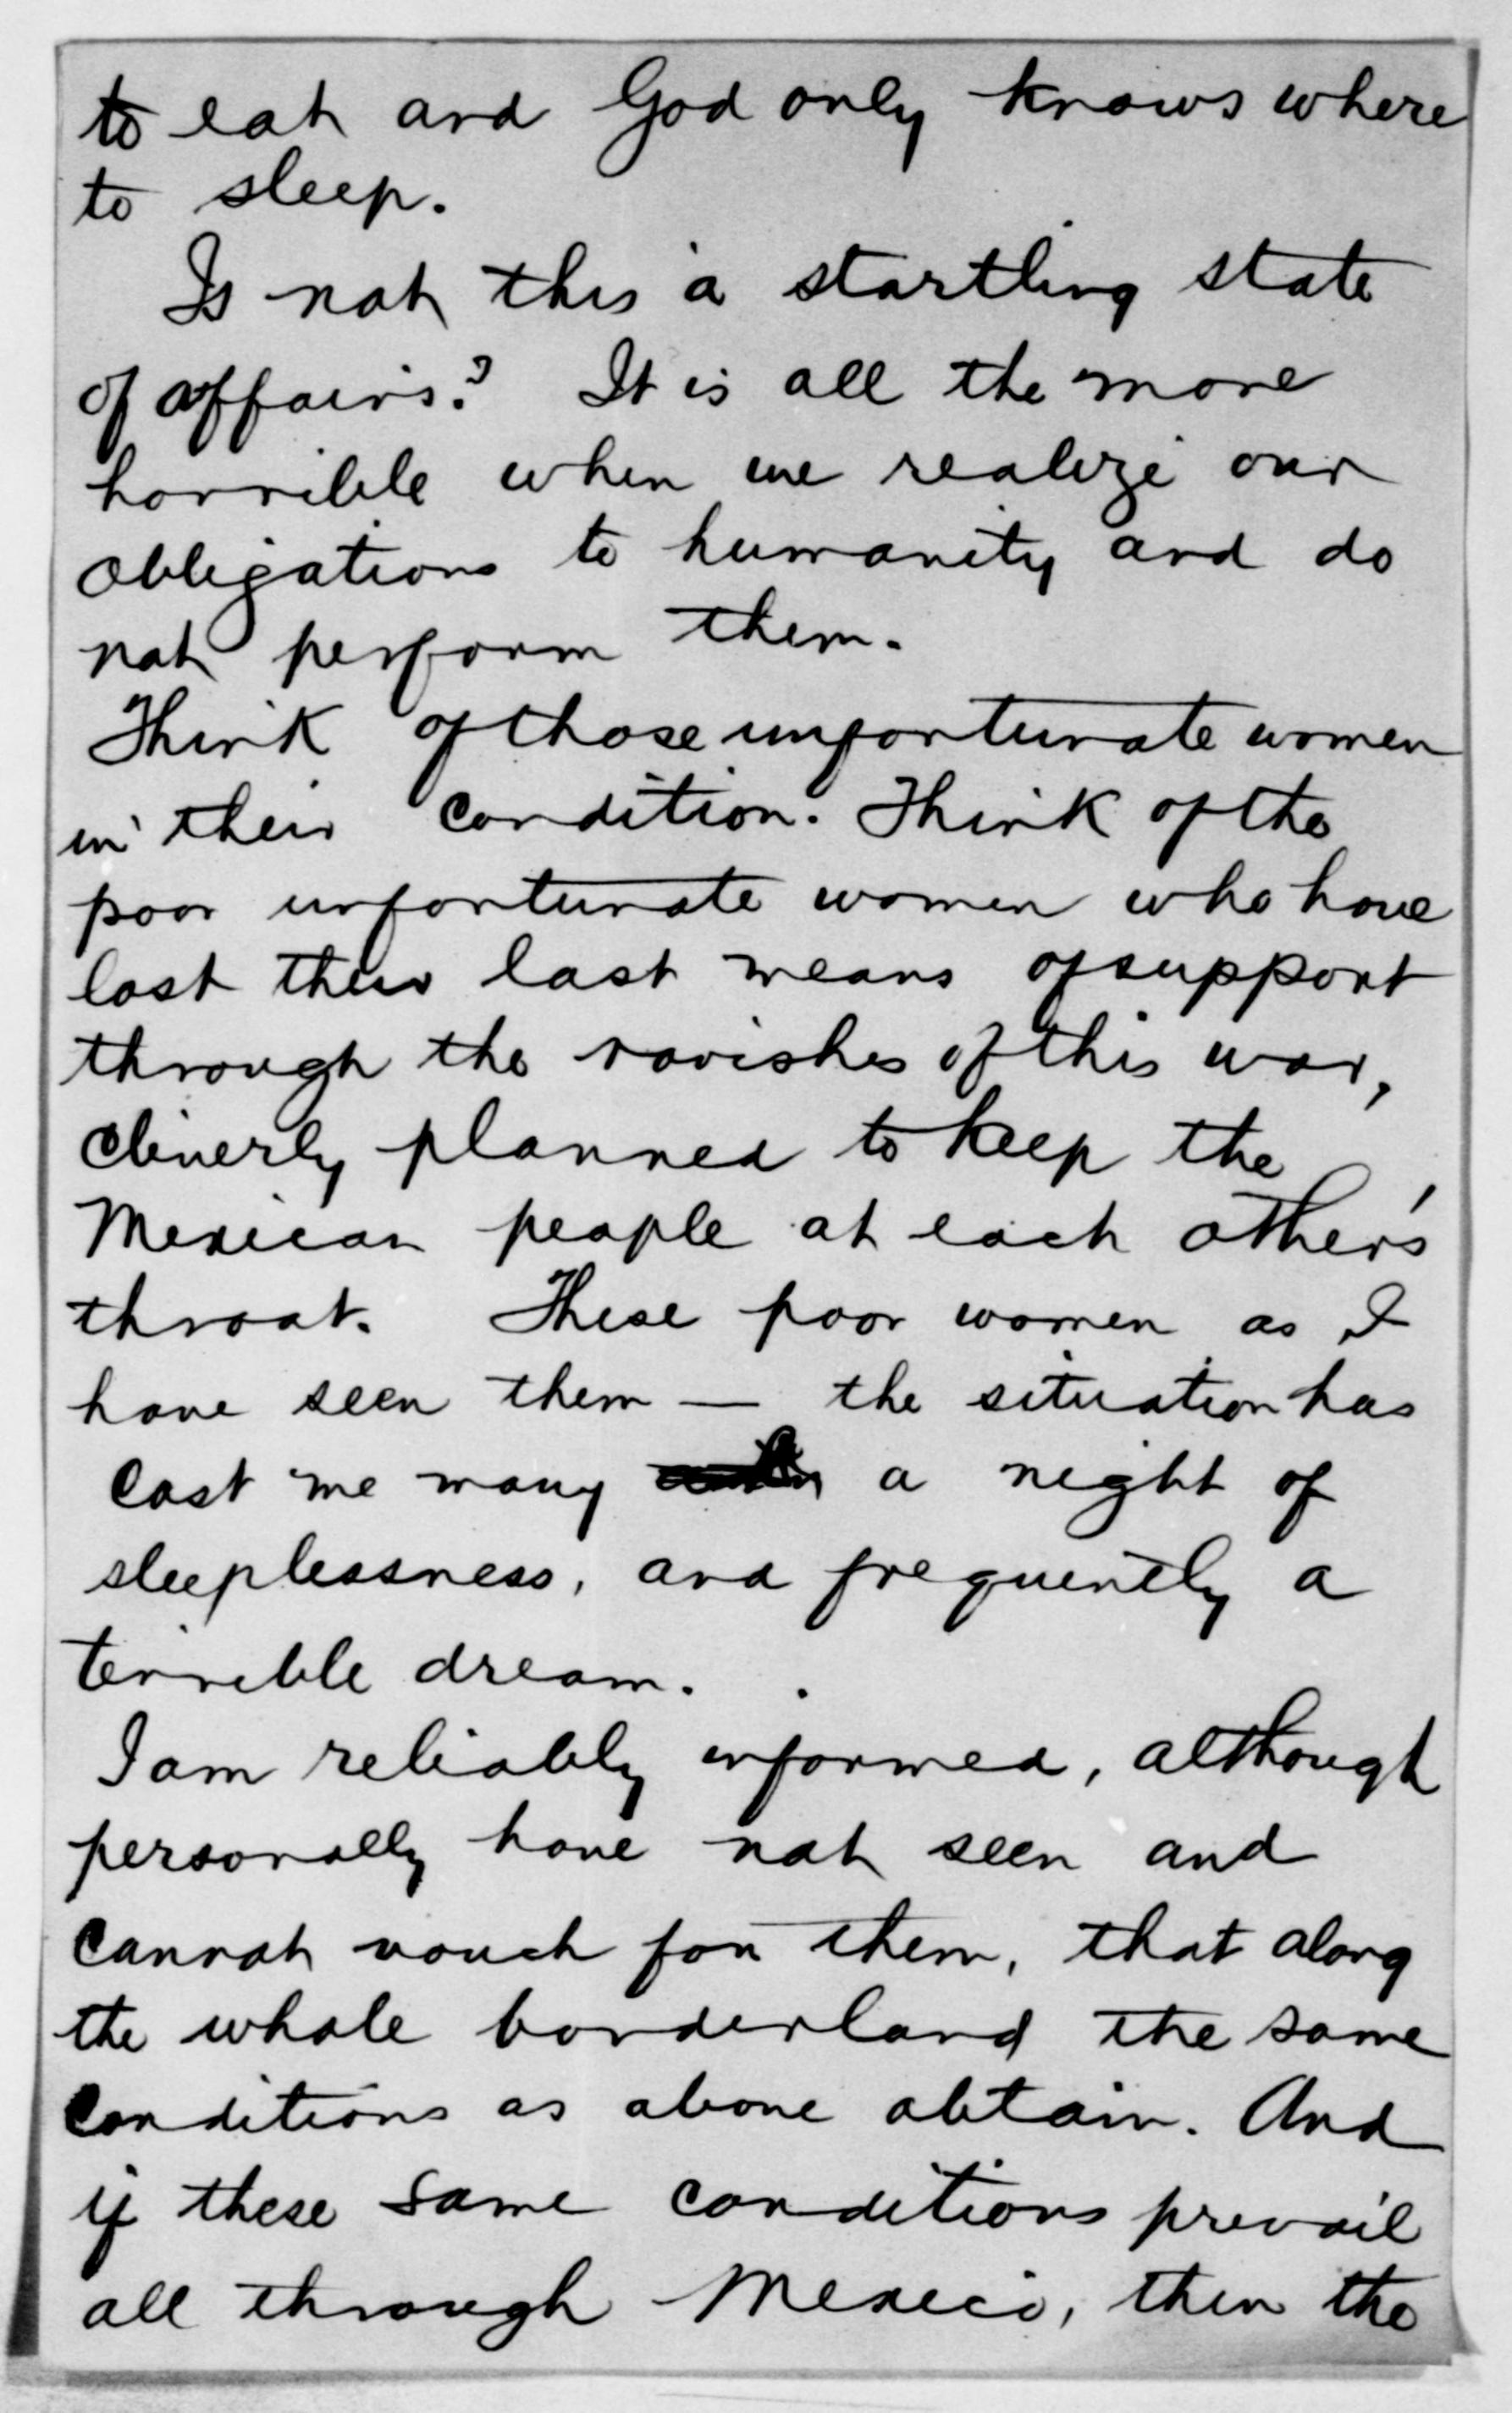 to eat and God only knows where
to sleep.
Is not this a startling state
of affairs? It is all the more
horrible when we realize our
obligations to humanity and do
not perform them.
Think of those unfortunate women
in their condition. Think of the
poor unfortunate women who have
lost their last means of support
through the ravishes of this war,
cleverly planned to keep the
Mexican people at each other's
throat. These poor women as I
have seen them — the situation has
cost me many a night of
sleeplessness, and frequently a
terrible dream.
I am reliably informed, although
personally have not seen and
cannot vouch for them, that along
the whole borderland the same
conditions as above obtain. And
if these same conditions prevail
all through Mexico, then the